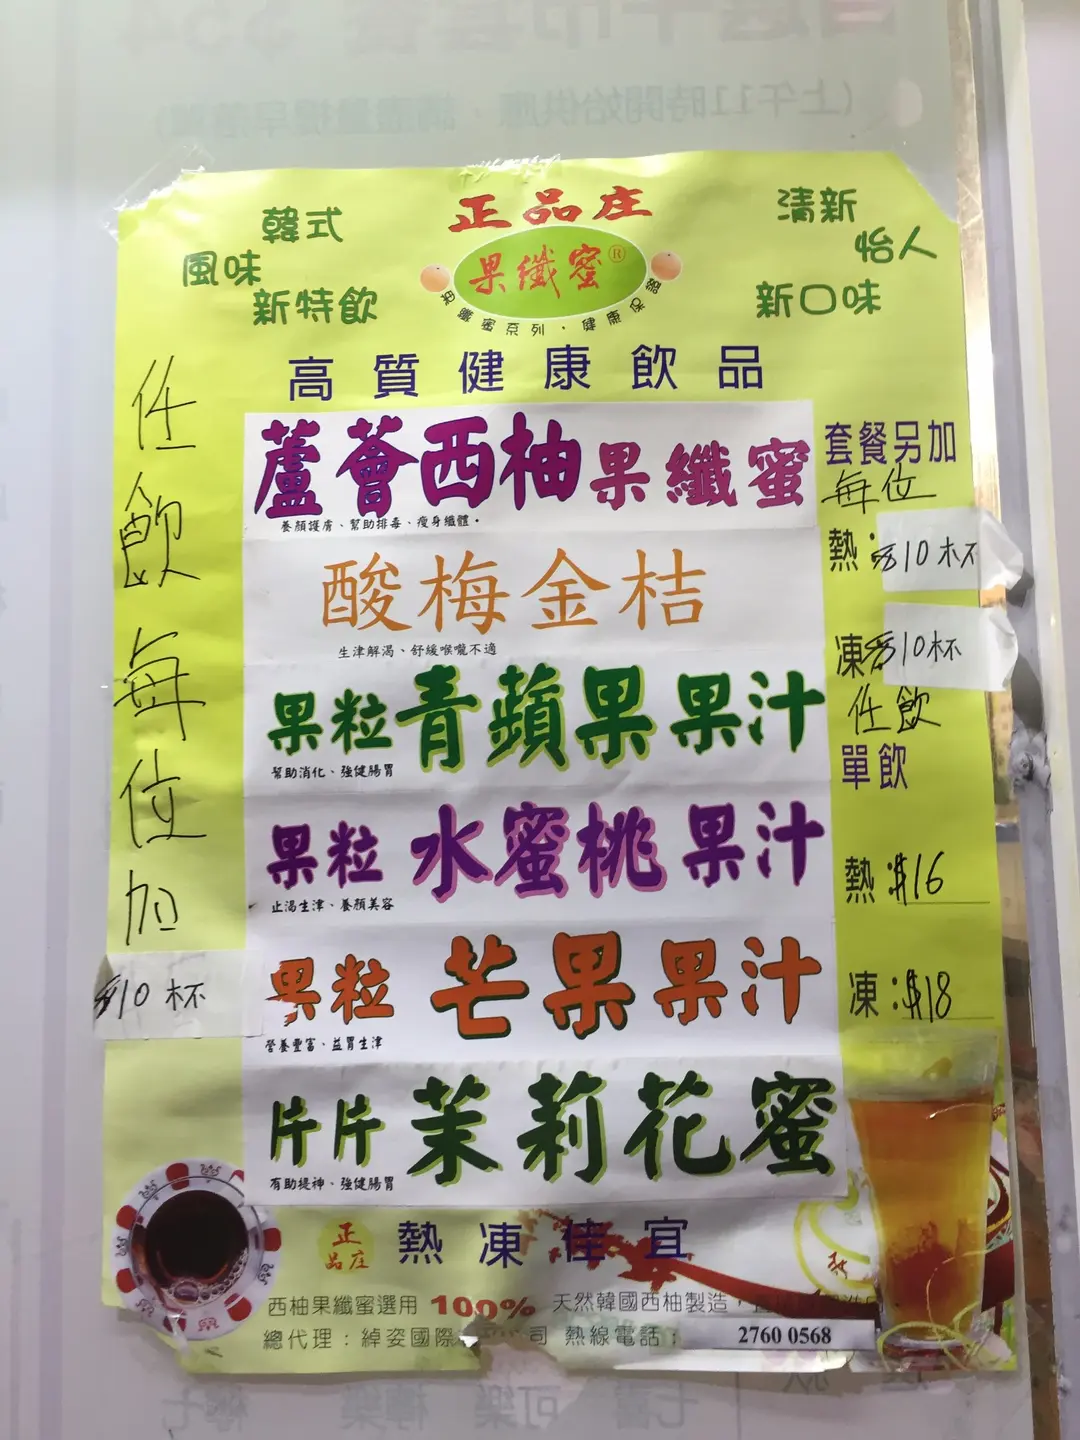 (上午11時開始供應
韓式
風味
新特飲
正品庄
果纖蜜®
柚纖蜜系列·健康保證
清新
怡人
新口味
高質健康飲品
任飲每位加
$10杯
蘆薈西柚果纖蜜
養顏護膚、幫助排毒、瘦身纖體。
酸梅金桔
生津解渴、舒緩喉嚨不適
果粒青蘋果果汁
幫助消化、強健腸胃
果粒水蜜桃果汁
止渴生津、養顏美容
果粒芒果果汁
營養豐富、益胃生津
片片茉莉花蜜
有助提神、強健腸胃
套餐另加
每位
熱:$10杯
凍$10杯
任飲
單飲
熱:$16
凍:$18
正品庄
熱凍佳宜
西柚果纖蜜選用 100% 天然韓國西柚製造,
總代理:綽姿國際 司 熱線電話: 2760 0568
七喜 可樂